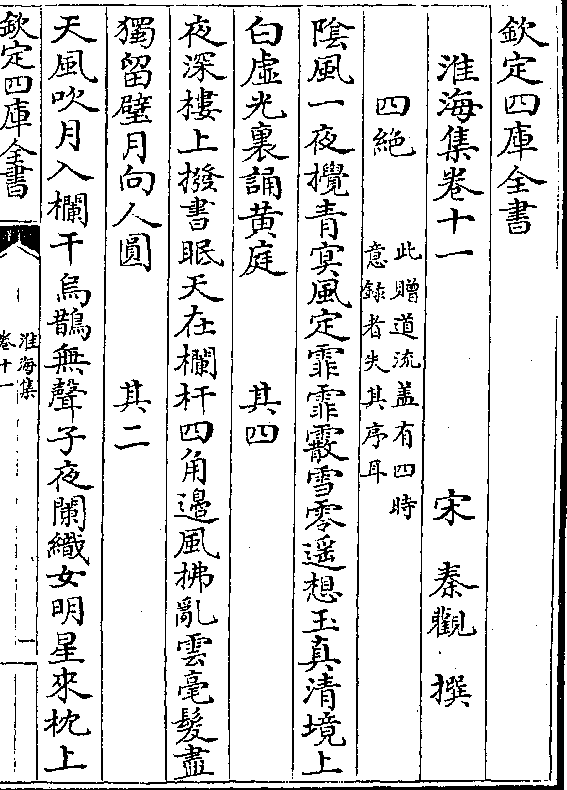 欽定四庫全書
淮海集卷十一
宋 秦觀 撰
四絶
此贈道流盖有四時
意録者失其序耳
陰風一夜攪青冥風定霏霏霰雪零遥想玉真清境上
白虛光裏誦黄庭 其四
夜深樓上撥書眠天在欄杆四角邉風拂亂雲毫髪盡
獨留璧月向人圓 其二
天風吹月入欄干烏鵲無聲子夜闌織女明星來枕上
欽定四庫全書
淮海集
卷十一
一